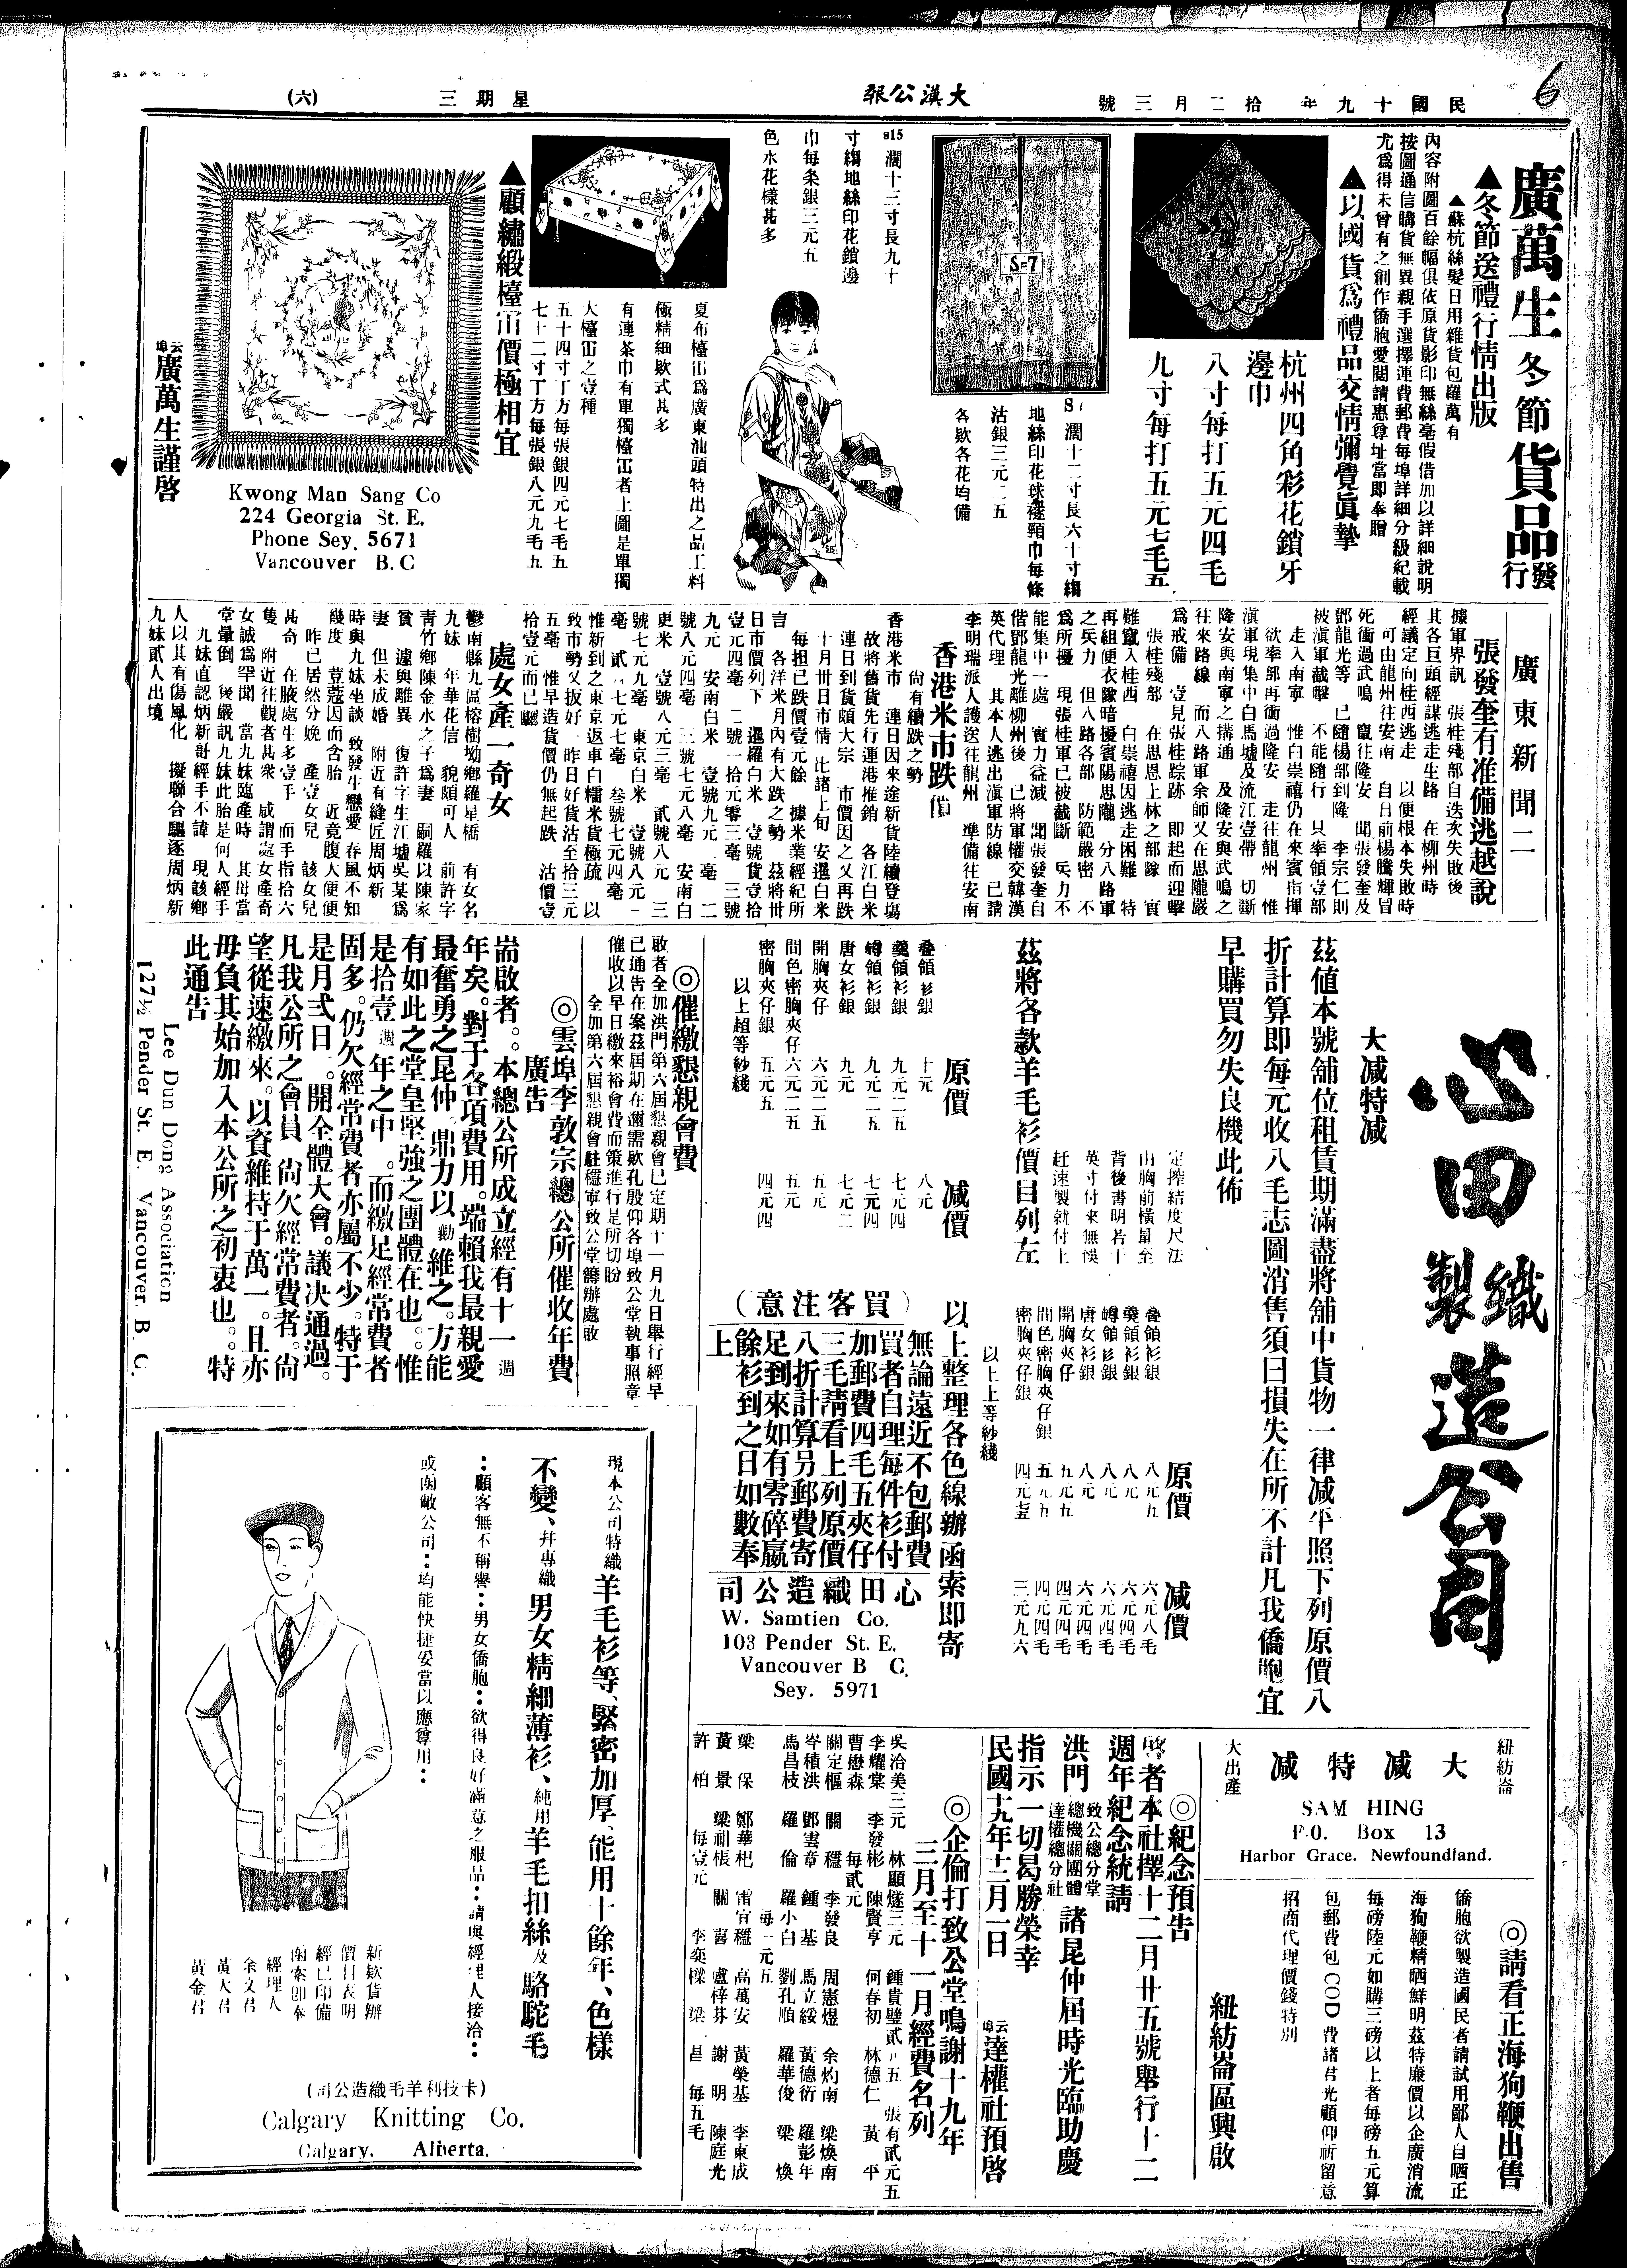 民國十九年 拾二月三號
大漢公報
星期三
(六)
6
廣萬生冬節貨品發行
▲冬節送禮行情出版
▲蘇杭絲髮日用雜貨包羅萬有
內容附圖百餘幅俱依原貨影印無絲毫假借加以詳細說明
按圖通信購貨無異親手選擇連費郵費每埠詳細分級紀載
尤爲得未曾有之創作僑胞愛閱請惠尊址當即奉贈
▲以國貨爲禮品交情彌覺眞摯
杭州四角彩花鎖牙
邊巾
八寸每打五元四毛
九寸每打五元七毛五
S=7
S7 濶十二寸長六十寸縐
地絲印花球穗頸巾每條
沽銀三元二五
各欵各花均備
s15 濶十三寸長九十
寸縐地絲印花鎖邊
巾每条銀三元五
色水花樣甚多
夏布檯𢂁爲廣東汕頭特出之品工料
極精細欵式甚多
有連茶巾有單獨檯𢂁者上圖是單獨
大檯𢂁之壹種
五十四寸丁方每張銀四元七毛五
七十二寸丁方每張銀八元九毛九
▲顧繡緞檯𢂁價極相宜
云埠廣萬生謹啓
Kwong Man Sang Co
224 Georgia St. E.
Phone Sey. 5671
Vancouver B. C
廣東新聞二
張發奎有准備逃越說
據軍界訊 張桂殘部自迭次失敗後
其各巨頭經謀逃走生路 在柳州時
經議定向桂西逃走 以便根本失敗時
可由龍州往安南 自日前楊騰輝冒
死衝過武鳴 竄往隆安 聞張發奎及
鄧龍光等 已隨楊部到隆 李宗仁則
被滇軍截擊 不能隨行 只率領壹部
走入南寧 惟白崇禧仍在來賓指揮
欲率部再衝過隆安 走往龍州 惟
滇軍現集中白馬墟及流江壹帶 切斷
隆安與南寧之搆通 及隆安與武鳴之
往來路線 而八路軍余師又在思隴嚴
爲戒備 壹見張桂踪跡 即起而迎擊
張桂殘部 在思恩上林之部隊 實
難竄入桂西 白崇禧因逃走困難 特
再組便衣隊暗擾賓陽思隴 分八路軍
之兵力 但八路各部 防範嚴密 不
爲所擾 現張桂軍已被截斷 兵力不
能集中一處 實力益減 聞張發奎自
偕鄧龍光離柳州後 已將軍權交韓漢
英代理 其本人逃出滇軍防線 已請
李明瑞派人護送往龍州 準備往安南
香港米市跌價
尙有續跌之勢
香港米市 連日因來途新貨陸續登塲
故將舊貨先行運港推銷 各江白米
連日到貨頗大宗 市價因之又再跌
十月卅日市情 比諸上旬 安暹白米
每担已跌價壹元餘 據米業經紀所
言 各洋米月內有大跌之勢 茲將卅
日市價列下 暹羅白米 壹號貨壹拾
壹元四毫 二號一拾元零三毫 三號
九元 安南白米 壹號九元 毫 二
號八元四毫 三號七元八毫 安南白
更米 壹號八元三毫 貳號八元 三
號七元九毫 東京白米 壹號八元一
毫 貳 七元七毫 叁號七元四毫
惟新到之東京返車白糯米貨極疏 以
致市勢又扳好 昨日好貨沽至拾三元
五毫 惟早造貨價仍無起跌 沽價壹
拾壹元而已
處女產一奇女
鬱南縣九區榕樹㘭鄉羅星橋 有女名
九妹 年華花信 貌頗可人 前許字
靑竹鄉陳金水之子爲妻 嗣羅以陳家
貧 遽與離異 復許字生江墟吳某爲
妻 但未成婚 附近有縫匠周炳新
時與九妹坐談 致發生戀愛 春風不知
幾度 荳蔻因而含胎 近竟腹大便便
昨已居然分娩 產壹女兒 該女兒
甚奇 在腋處生多壹手 而手指拾六
隻 附近往觀者甚衆 咸謂處女產奇
女誠爲罕聞 當九妹臨產時 其母當
堂暈倒 後嚴訊九妹此胎是何人經手
九妹直認炳新哥經手不諱 現該鄉
人以其有傷風化 擬聯合驅逐周炳新
九妹貳人出境
心田織製造公司
大减特减
茲値本號舖位租賃期滿盡將舖中貨物一律减平照下列原價八
折計算即每元收八毛志圖消售須曰損失在所不計凡我僑胞宜
早購買勿失良機此佈
定擰結度尺法
由胸前橫量至
背後書明若干
英寸付來無悞
赶速製就付上
茲將各款羊毛衫價目列左
原價 减價
叠領衫銀 十元 八元
羙領衫銀 九元二五 七元四
㠉領衫銀 九元二五 七元四
唐女衫銀 九元 七元二
開胸夾仔 六元二五 五元
間色密胸夾仔 六元二五 五元
密胸夾仔銀 五元五 四元四
以上超等紗綫
原價 减價
叠領衫銀 八元五 六元八毛
羙領衫銀 八元 六元四毛
㠉領衫銀 八元 六元四毛
唐女衫銀 八元 六元四毛
開胸夾仔 五元五 四元四毛
間色密胸夾仔銀 五元五 四元四毛
密胸夾仔銀 三元九六
以上上等紗綫
以上整理各色線辦函索即寄
(買客注意)
無論遠近不包郵費
買者自理每件衫付
加郵費四毛五夾仔
三毛請看上列原價
八折計算另郵費寄
足到來如有零碎嬴
餘衫到之日如數奉
上
心田織造公司
W. Samtien Co.
103 Pender St. E.
Vancouver B C.
Sey. 5971
◎催繳懇親會費
敢者全加洪門第六屆懇親會已定期十一月九日舉行經早
已通告在案茲屆期在邇需欵孔殷仰各埠致公堂執事照章
催收以早日繳來裕會費而策進行是所切盼
全加第六屆懇親會駐穩寧致公堂籌辦處啟
◎雲埠李敦宗總公所催收年費
廣告
耑啟者。本總公所成立經有十一週
年矣。對于各項費用。端賴我最親愛
最奮勇之昆仲。鼎力以勷維之。方能
有如此之堂皇堅強之團體在也。惟
是拾壹週年之中。而繳足經常費者
固多。仍欠經常費者亦屬不少。特于
是月弍日。開全體大會。議决通過。
凡我公所之會員。尙欠經常費者。尙
望從速繳來。以資維持于萬一。且亦
毋負其始加入本公所之初衷也。特
此通告
Lee Dun Dong Association
127½ Pender St. E. Vancouver. B. C.
現本公司特織羊毛衫等、緊密加厚、能用十餘年、色樣
不變、幷專織男女精細薄衫、純用羊毛扣絲及駱駝毛
：顧客無不稱譽：男女僑胞：欲得良好滿意之服品：請與經理人接洽：
或函敝公司：均能快捷妥當以應尊用：
新欵貨辦
價目表明
經已印備
函索即奉
經理人
余文君
黃大君
黃金君
(卡技利羊毛織造公司)
Calgary Knitting Co.
Calgary. Alberta.
紐紡崙
大减特减
大出產
SAM HING
P.O. Box 13
Harbor Grace. Newfoundland.
◎請看正海狗鞭出售
僑胞欲製造國民者請試用鄙人自晒正
海狗鞭精晒鮮明茲特廉價以企廣消流
每磅陸元如購三磅以上者每磅五元算
包郵費包COD費諸君光顧仰祈留意
招商代理價錢特別
紐紡崙區興啟
◎紀念預告
啓者本社擇十二月廿五號舉行十二
週年紀念統請
洪門致公總分堂總機關團體達權總分社諸昆仲屆時光臨助慶
指示一切曷勝榮幸
民國十九年十二月一日
云埠達權社預啓
◎企倫打致公堂鳴謝十九年
三月至十一月經費名列
吳洽美三元 林顯燧三元 鍾貴璧貳 五 張有貳元五
李耀棠 李發彬 陳賢亨 何春初 林德仁 黃平
曹懋森 每貳元
關定樞 關穩 李發良 周憲煜 余灼南 梁煥南
岑積洪 鄧雲章 鍾基 馬立綏 黃德衍 羅彭年
馬昌枝 羅倫 羅小白 劉孔順 羅華俊 梁煥
每一元五
梁保 鄭華杞 雷宜穩 高萬安 黃榮基 李東成
黃景 梁祖棖 關喜 盧梓芬 謝明 陳庭光
每壹元
許柏 李奕樑 梁昌 每五毛